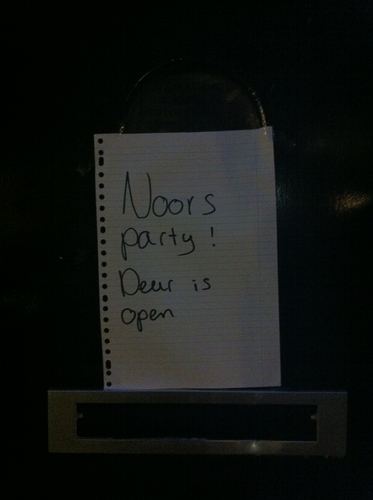 Noors
party!
Deur is
open